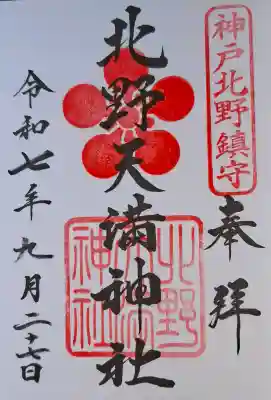 神戸北野鎮守
奉拝
北野天満神社
北野天満神社
令和七年九月二十七日